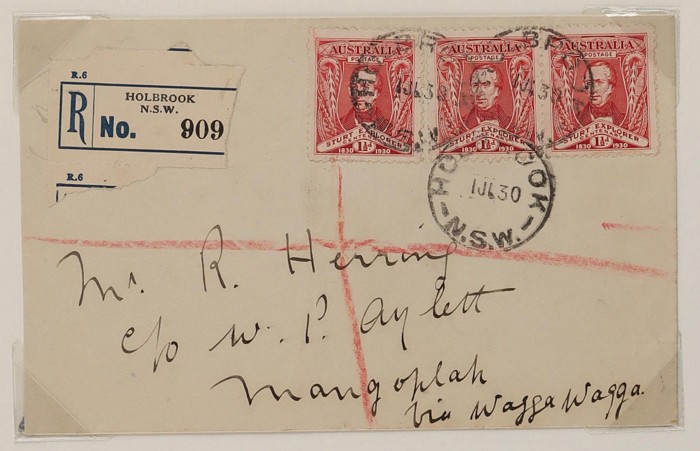 R.6
HOLBROOK
N.S.W.
R No. 909
R.6
AUSTRALIA
POSTAGE
STURT EXPLORER
CENTENARY
1830 1½D 1930
AUSTRALIA
POSTAGE
STURT EXPLORER
CENTENARY
1830 1½D 1930
AUSTRALIA
POSTAGE
STURT EXPLORER
CENTENARY
1830 1½D 1930
1JL30
1JL30
HOLBROOK
1JL30
N.S.W.
Mr. R. Herring
c/o W. P. Aylett
Mangoplah
Via Wagga Wagga.